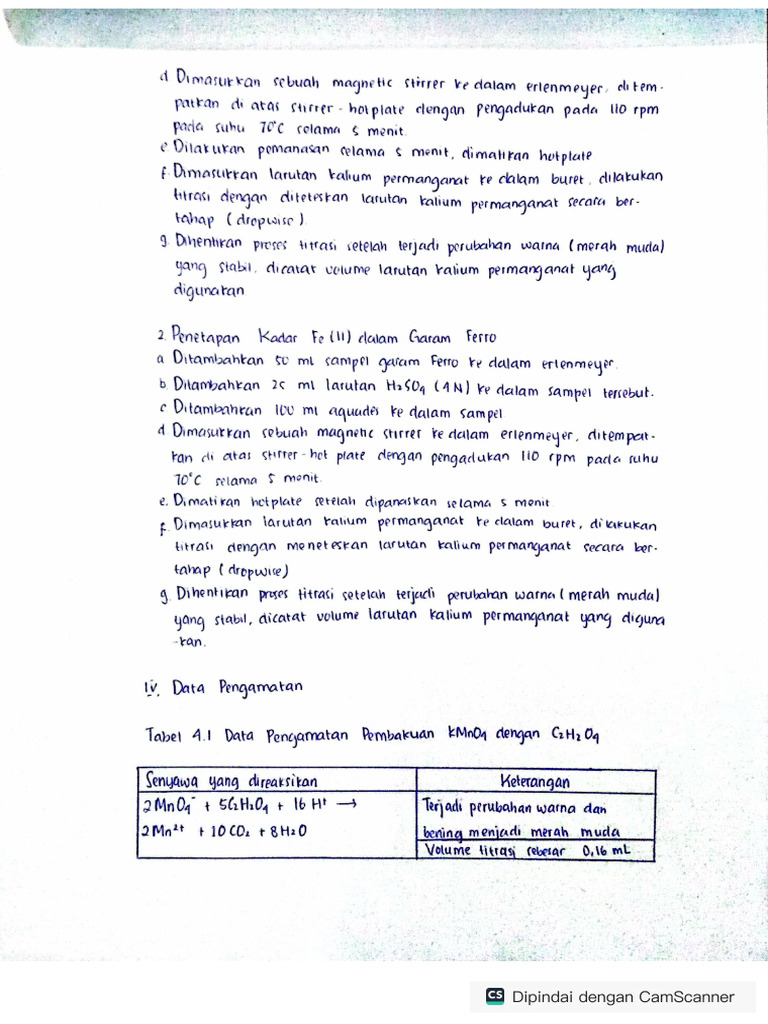 d. Dimasukkan sebuah magnetic stirrer ke dalam erlenmeyer, ditem-
patkan di atas stirrer-hotplate dengan pengadukan pada 110 rpm
pada suhu 70°C selama 5 menit.
e. Dilakukan pemanasan selama 5 menit, dimatikan hotplate
f. Dimasukkan larutan kalium permanganat ke dalam buret, dilakukan
titrasi dengan diteteskan larutan kalium permanganat secara ber-
tahap (dropwise)
g. Dihentikan proses titrasi setelah terjadi perubahan warna (merah muda)
yang stabil, dicatat volume larutan kalium permanganat yang
digunakan
2. Penetapan Kadar Fe (II) dalam Garam Ferro
a. Ditambahkan 50 ml sampel garam Ferro ke dalam erlenmeyer.
b. Ditambahkan 25 ml larutan H₂SO₄ (4N) ke dalam sampel tersebut.
c. Ditambahkan 100 ml aquades ke dalam sampel
d. Dimasukkan sebuah magnetic stirrer ke dalam erlenmeyer, ditempat-
kan di atas stirrer-hot plate dengan pengadukan 110 rpm pada suhu
70°C selama 5 menit.
e. Dimatikan hotplate setelah dipanaskan selama 5 menit
f. Dimasukkan larutan kalium permanganat ke dalam buret, dilakukan
titrasi dengan meneteskan larutan kalium permanganat secara ber-
tahap (dropwise)
g. Dihentikan proses titrasi setelah terjadi perubahan warna (merah muda)
yang stabil, dicatat volume larutan kalium permanganat yang diguna
-kan.
IV. Data Pengamatan
Tabel 4.1 Data Pengamatan Pembakuan KMnO₄ dengan C₂H₂O₄
Senyawa yang direaksikan
Keterangan
2MnO₄⁻ + 5C₂H₂O₄ + 16 H⁺ →
2Mn²⁺ + 10CO₂ + 8H₂O
Terjadi perubahan warna dari
bening menjadi merah muda
Volume titrasi sebesar 0,16 mL
CS Dipindai dengan CamScanner